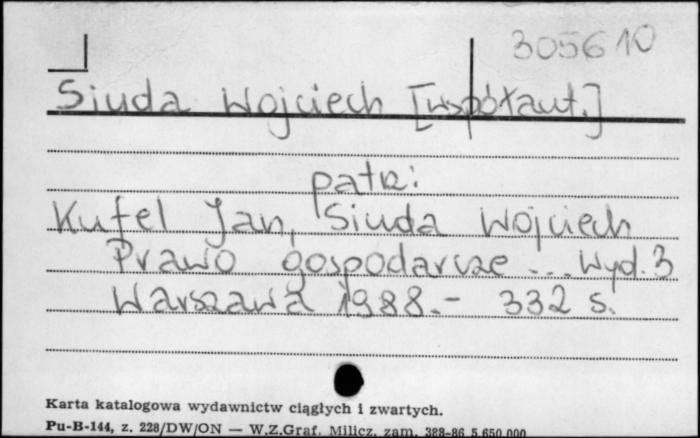 305610
Siuda Wojciech [współaut.]
patrz:
Kufel Jan, Siuda Wojciech
Prawo gospodarcze ... Wyd. 3
Warszawa 1988.- 332 s.
Karta katalogowa wydawnictw ciągłych i zwartych.
Pu-B-144, z. 228/DW/ON — W.Z.Graf. Milicz, zam. 388-86 5.650.000